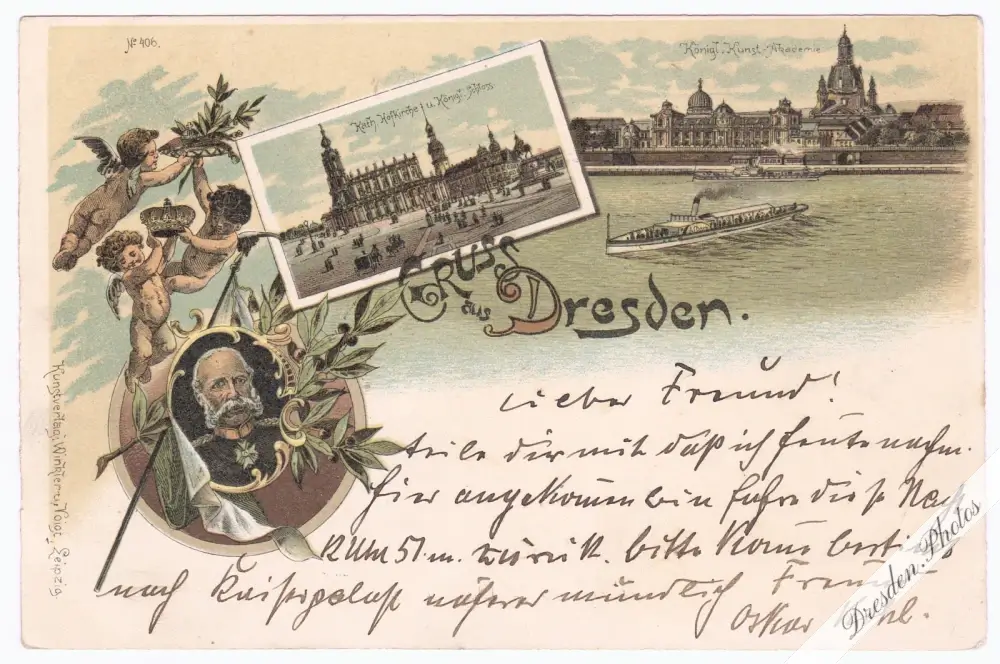 No 406.
Königl. Kunst-Akademie
Kath. Hofkirche u. Königl. Schloss.
Gruss
aus Dresden.
Lieber Freund!
teile dir mit daß ich heute nachm.
hier angekomen bin fahre diese
12 Uhr 51. m. zurück. bitte kome
nach Kaiserpalast näheres mündlich
Oskar
Kunstverlag Winkler u. Voigt, Leipzig.
Dresden.Photos